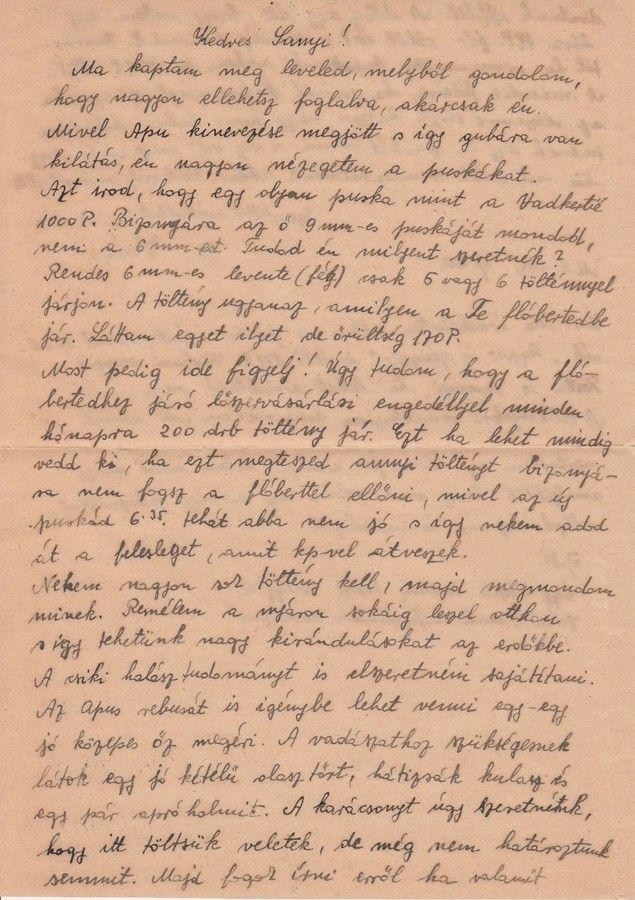 Kedves Sanyi!
Ma kaptam meg leveled, melyből gondolom,
hogy nagyon ellehetsz foglalva, akárcsak én.
Mivel Apu kinevezése megjött s így gubára van
kilátás, én nagyon nézegetem a puskákat.
Azt írod, hogy egy olyan puska mint a Vadkertié
1000 P. Bizonyára az ő 9 mm-es puskáját mondod,
nem a 6 mm-est. Tudod én milyent szeretnék?
Rendes 6 mm-es levente (fék) csak 5 vagy 6 tölténnyel
járjon. A töltény ugyanaz, amilyen a Te flóbertedbe
jár. Láttam egyet ilyet de őrültség 170 P.
Most pedig ide figyelj! Úgy tudom, hogy a fló-
bertedhez járó lőszervásárlási engedéllyel minden
hónapra 200 drb töltény jár. Ezt ha lehet mindig
vedd ki, ha ezt megteszed annyi töltényt bizonyá-
ra nem fogsz a flóberttel ellőni, mivel az új
puskád 6.35. tehát abba nem jó s így nekem adod
át a felesleget, amit kp-vel átveszek.
Nekem nagyon sok töltény kell, majd megmondom
minek. Remélem a nyáron sokáig leszel otthon
s így tehetünk nagy kirándulásokat az erdőkbe.
A csiki halász tudományt is elszeretném sajátítani.
Az Apus rebusát is igénybe lehet venni egy-egy
jó közepes őz megéri. A vadászathoz szükségesnek
látok egy jó kétélű olasz tőrt, hátizsák kulacs és
egy pár apró holmit. A karácsonyt úgy szeretnénk,
hogy itt töltsük veletek, de még nem határoztunk
semmit. Majd fogok írni erről ha valamit